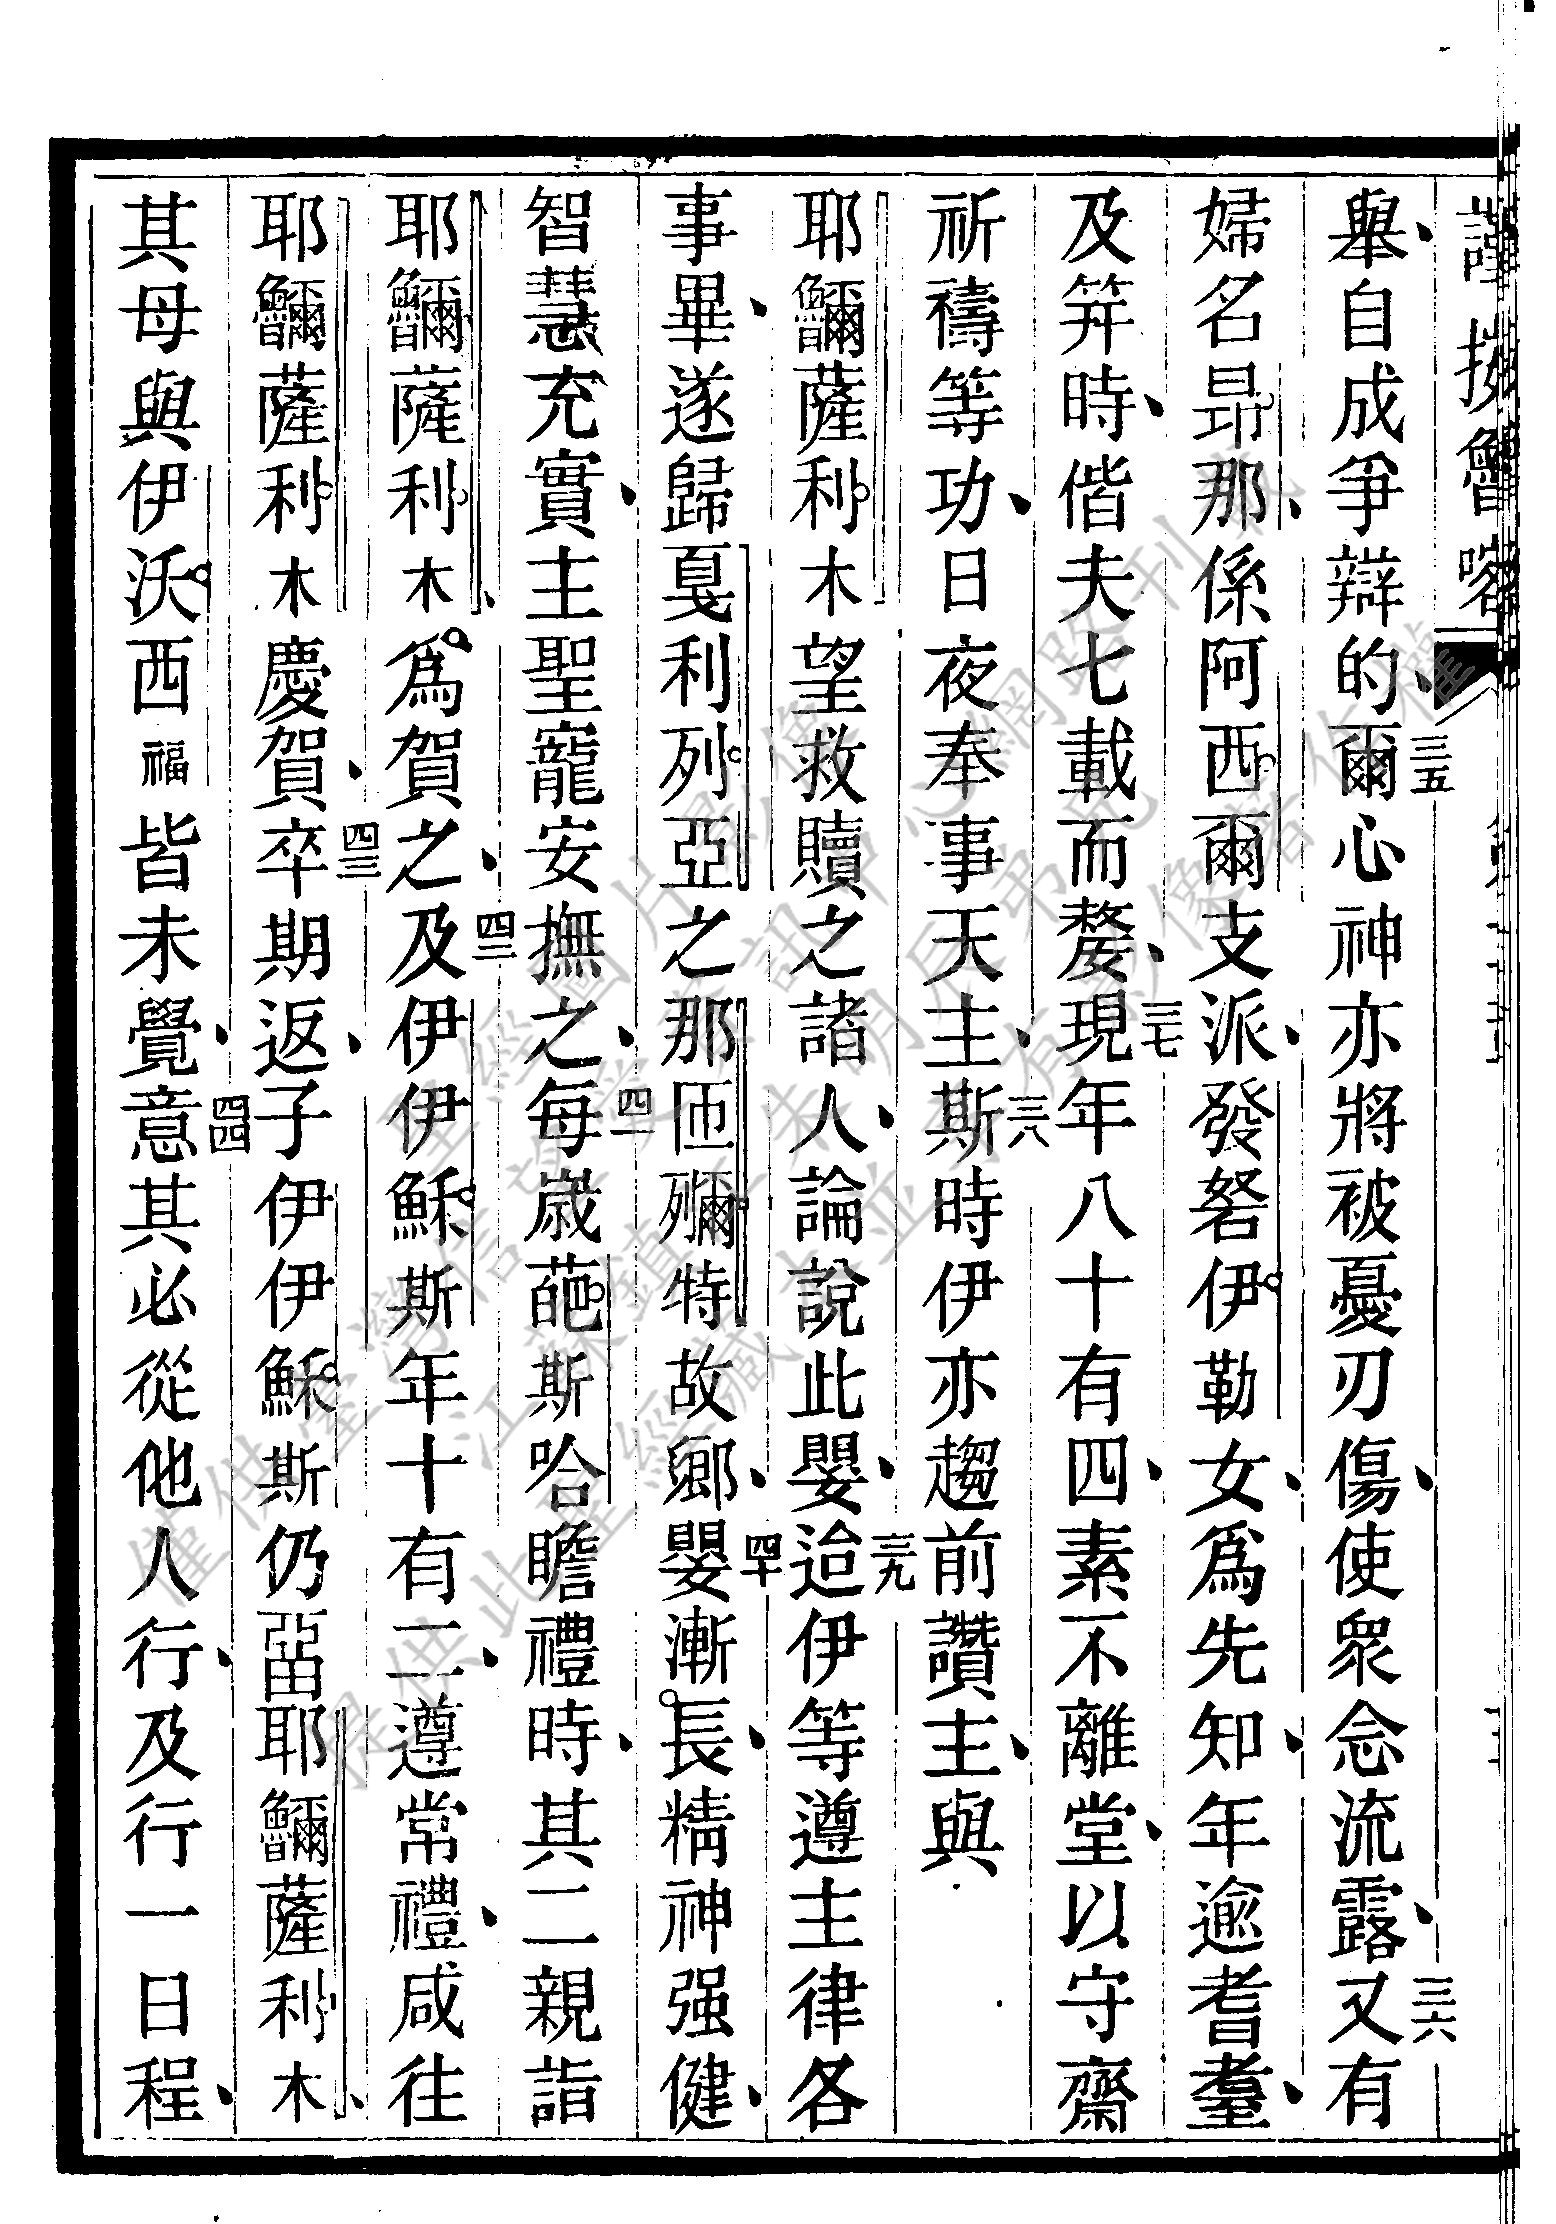 舉、自成爭辯的、三五爾心神亦將被憂刃傷、使衆念流露、三六又有
婦名昻那、係阿西爾支派、發砮伊勒女、爲先知、年逾耆耋、
及筓時、偕夫七載而嫠、三七現年八十有四、素不離堂、以守齋
祈禱等功、日夜奉事天主、三八斯時伊亦趨前讚主、與
耶𩦎薩利木望救贖之諸人、論說此嬰、三九迨伊等遵主律各
事畢、遂歸戛利列亞之那匝彌特故鄉、四十嬰漸長、精神强健、
智慧充實、主聖寵安撫之、四一每歲葩斯哈瞻禮時、其二親詣
耶薩利木、爲賀之、四二及伊伊穌斯年十有二、遵常禮、咸往
耶薩利木慶賀、四三卒期返、子伊伊穌斯仍畱耶薩利木、
其母與伊沃西福皆未覺、四四意其必從他人行、及行一日程、